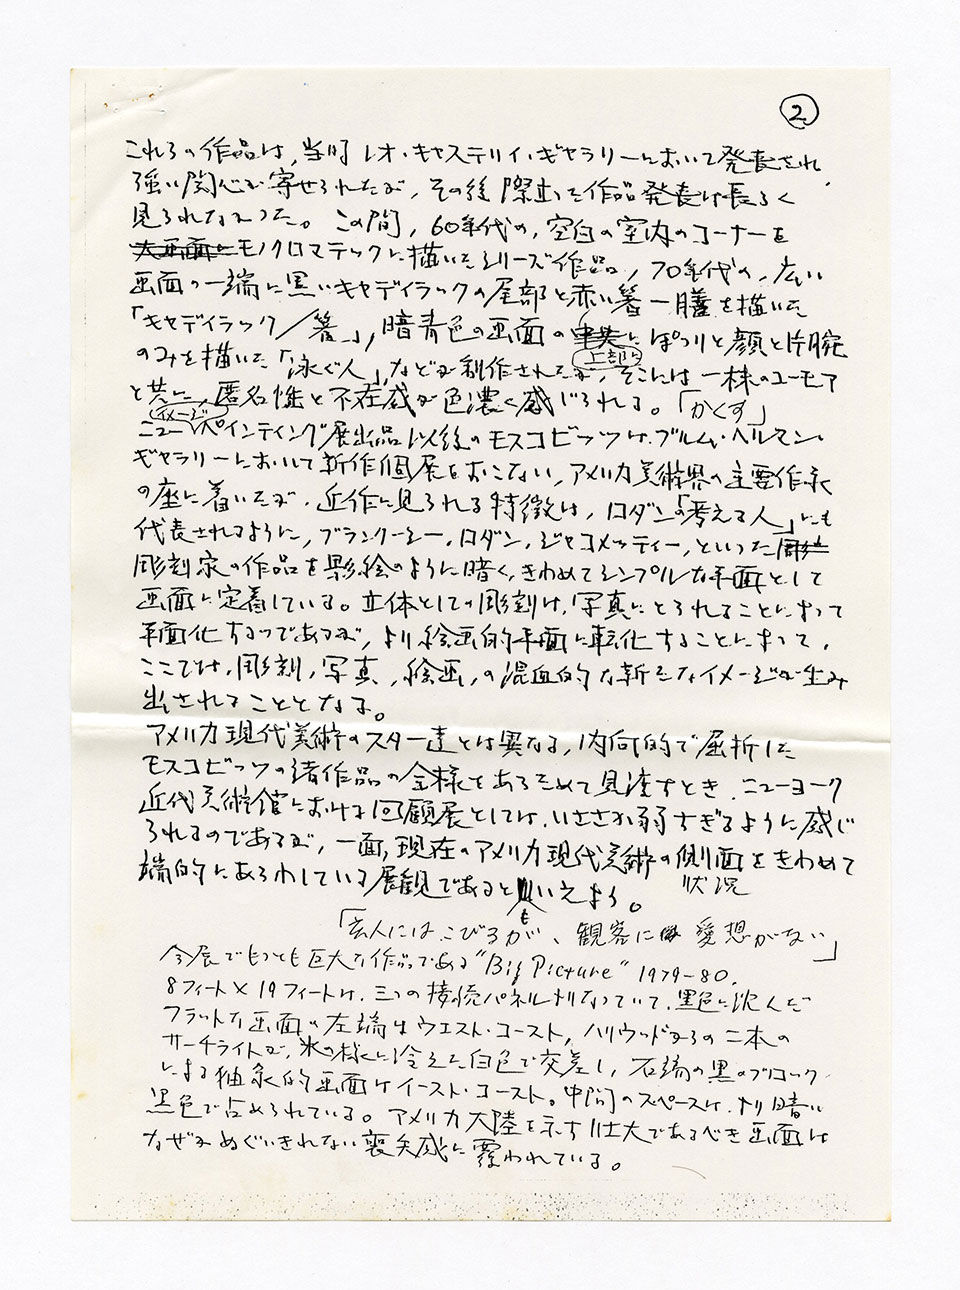 2
これらの作品は、当時レオ・キャステリィ・ギャラリーにおいて発表され
強い関心が寄せられたが、その後際立った作品発表は長らく
見られなかった。この間、60年代の、空白の室内のコーナーを
大画面にモノクロマテックに描いたシリーズ作品、70年代の、広い
画面の一端に黒いキャデイラックの尾部と赤い箸一膳を描いた
「キャデイラック/箸」、暗青色の画面の中央にぽつりと顔と片腕
上部に
のみを描いた「泳ぐ人」、などが制作されたが、そこには一株のユーモア
と共に、匿名性と不在感が色濃く感じられる。「かくす」
イメージ
ニューペインティング展出品以後のモスコビッツは、ブルム・ヘルマン・
ギャラリーにおいて新作個展をおこない、アメリカ美術界の主要作家
の座に着いたが、近作に見られる特徴は、ロダン「考える人」にも
代表されるように、ブランクーシー、ロダン、ジャコメッティー、といった
彫刻家の作品を影絵のように暗く、きわめてシンプルな平面として
画面に定着している。立体としての彫刻は、写真にとられることによって
平面化するのであるが、より絵画的平面に転化することによって、
ここでは、彫刻、写真、絵画、の混血的な新たなイメージが生み
出されることとなる。
アメリカ現代美術のスター達とは異なる、内向的で屈折した
モスコビッツの諸作品の全様をあらためて見渡すとき、ニューヨーク
近代美術館における回顧展としては、いささか弱すぎるように感じ
られるのであるが、一面、現在のアメリカ現代美術の側面をきわめて
状況
端的にあらわしている展観であるといえよう。
も
「玄人にはこびるが、観客には愛想がない」
今展でもっとも巨大な作品である"Big Picture" 1979-80.
8フィート×19フィートは、三つの接続パネルよりなっていて、黒色に沈んだ
フラットな画面の左端はウエスト・コースト、ハリウッドからの二本の
サーチライトが、氷の様に冷えた白色で交差し、右端の黒のブロック
による抽象的画面はイースト・コースト。中間のスペースは、より暗い
黒色で占められている。アメリカ大陸を示す壮大であるべき画面は
なぜかぬぐいきれない喪失感に覆われている。